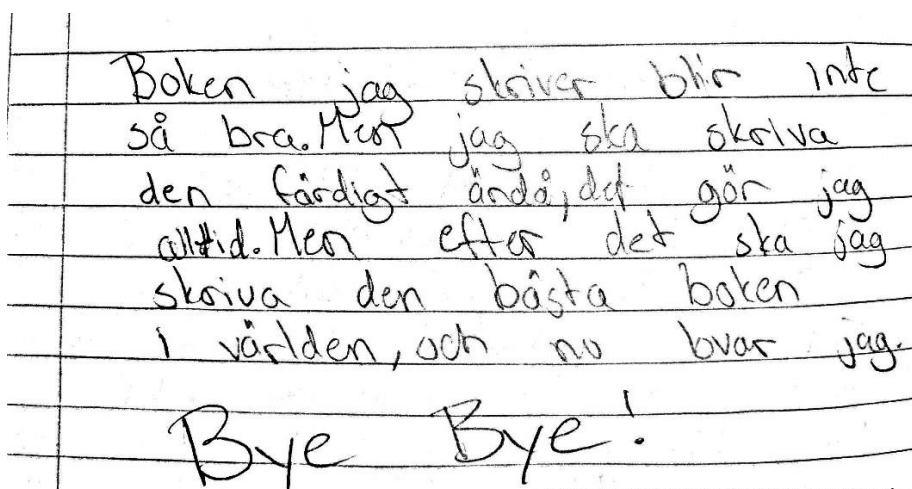 Boken jag skriver blir inte
så bra. Men jag ska skriva
den färdigt ändå, det gör jag
alltid. Men efter det ska jag
skriva den bästa boken
i världen, och nu lovar jag.
Bye Bye!